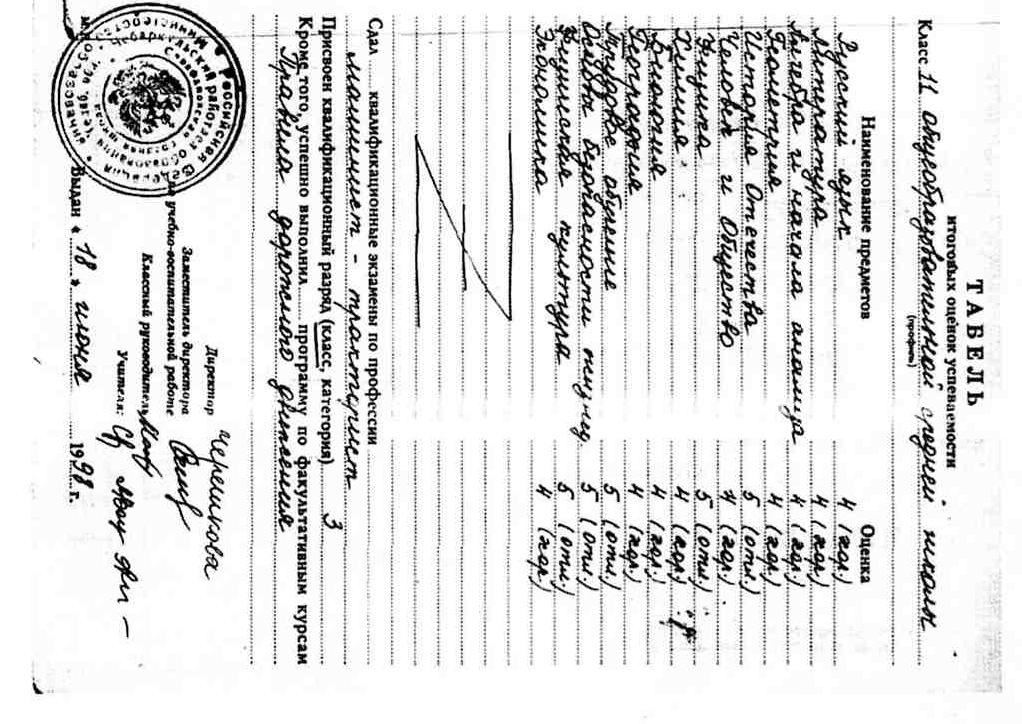 ТАБЕЛЬ
итоговых оценок успеваемости
(профиль)
Класс 11 общеобразовательной средней школы
Наименование предметов Оценка
Русский язык 4 (хор.)
Литература 4 (хор.)
Алгебра и начала анализа 4 (хор.)
Геометрия 4 (хор.)
История Отечества 5 (отл.)
Человек и Общество 4 (хор.)
Физика 5 (отл.)
Химия 4 (хор.)
Биология 4 (хор.)
География 4 (хор.)
Трудовое обучение 5 (отл.)
Основы безопасности жизнед. 5 (отл.)
Физическая культура 5 (отл.)
Экономика 4 (хор.)
Сдал квалификационные экзамены по профессии
машинист - тракторист
Присвоен квалификационный разряд (класс, категория) 3
Кроме того, успешно выполнил программу по факультативным курсам
Правила дорожного движения
Директор Черешкова
Заместитель директора
по учебно-воспитательной работе
Классный руководитель
Учителя:
Выдан « 18 » июня 1998 г.
Российская Федерация